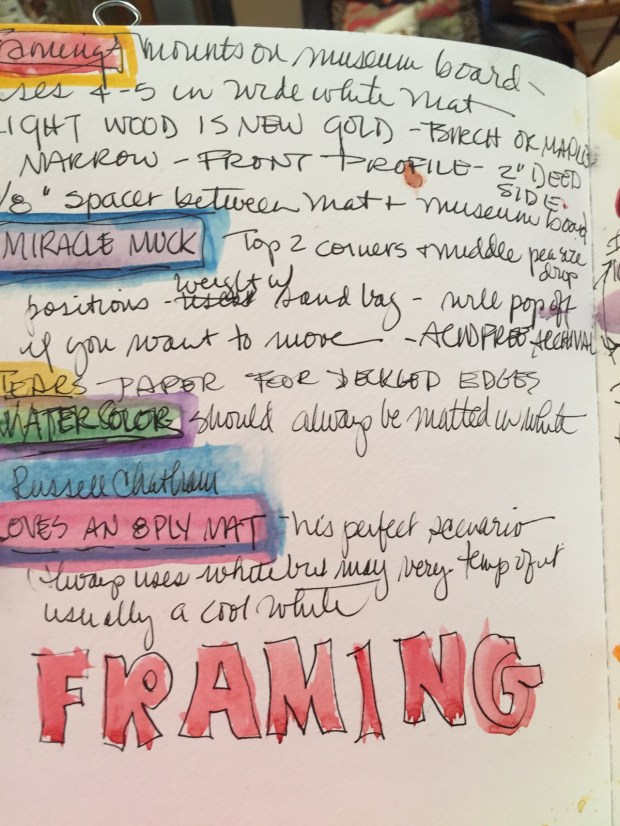 Framing mounts on museum board -
uses 4-5 in wide white mat
LIGHT WOOD IS NEW GOLD - BIRCH OR MAPLE
NARROW - FRONT PROFILE - 2" DEED
SIDE.
1/8" spacer between mat + museum board
MIRACLE MUCK Top 2 corners + middle pea size
drop
positions - weight w/ sand bag - will pop off
if you want to move - ACID FREE, ARCHIVAL
TEARS PAPER FOR DECKLED EDGES
WATERCOLOR should always be matted in white
Russell Chatham
LOVES AN 8PLY MAT - his perfect scenario
Always uses white but may very temp of it
usually a cool white
FRAMING